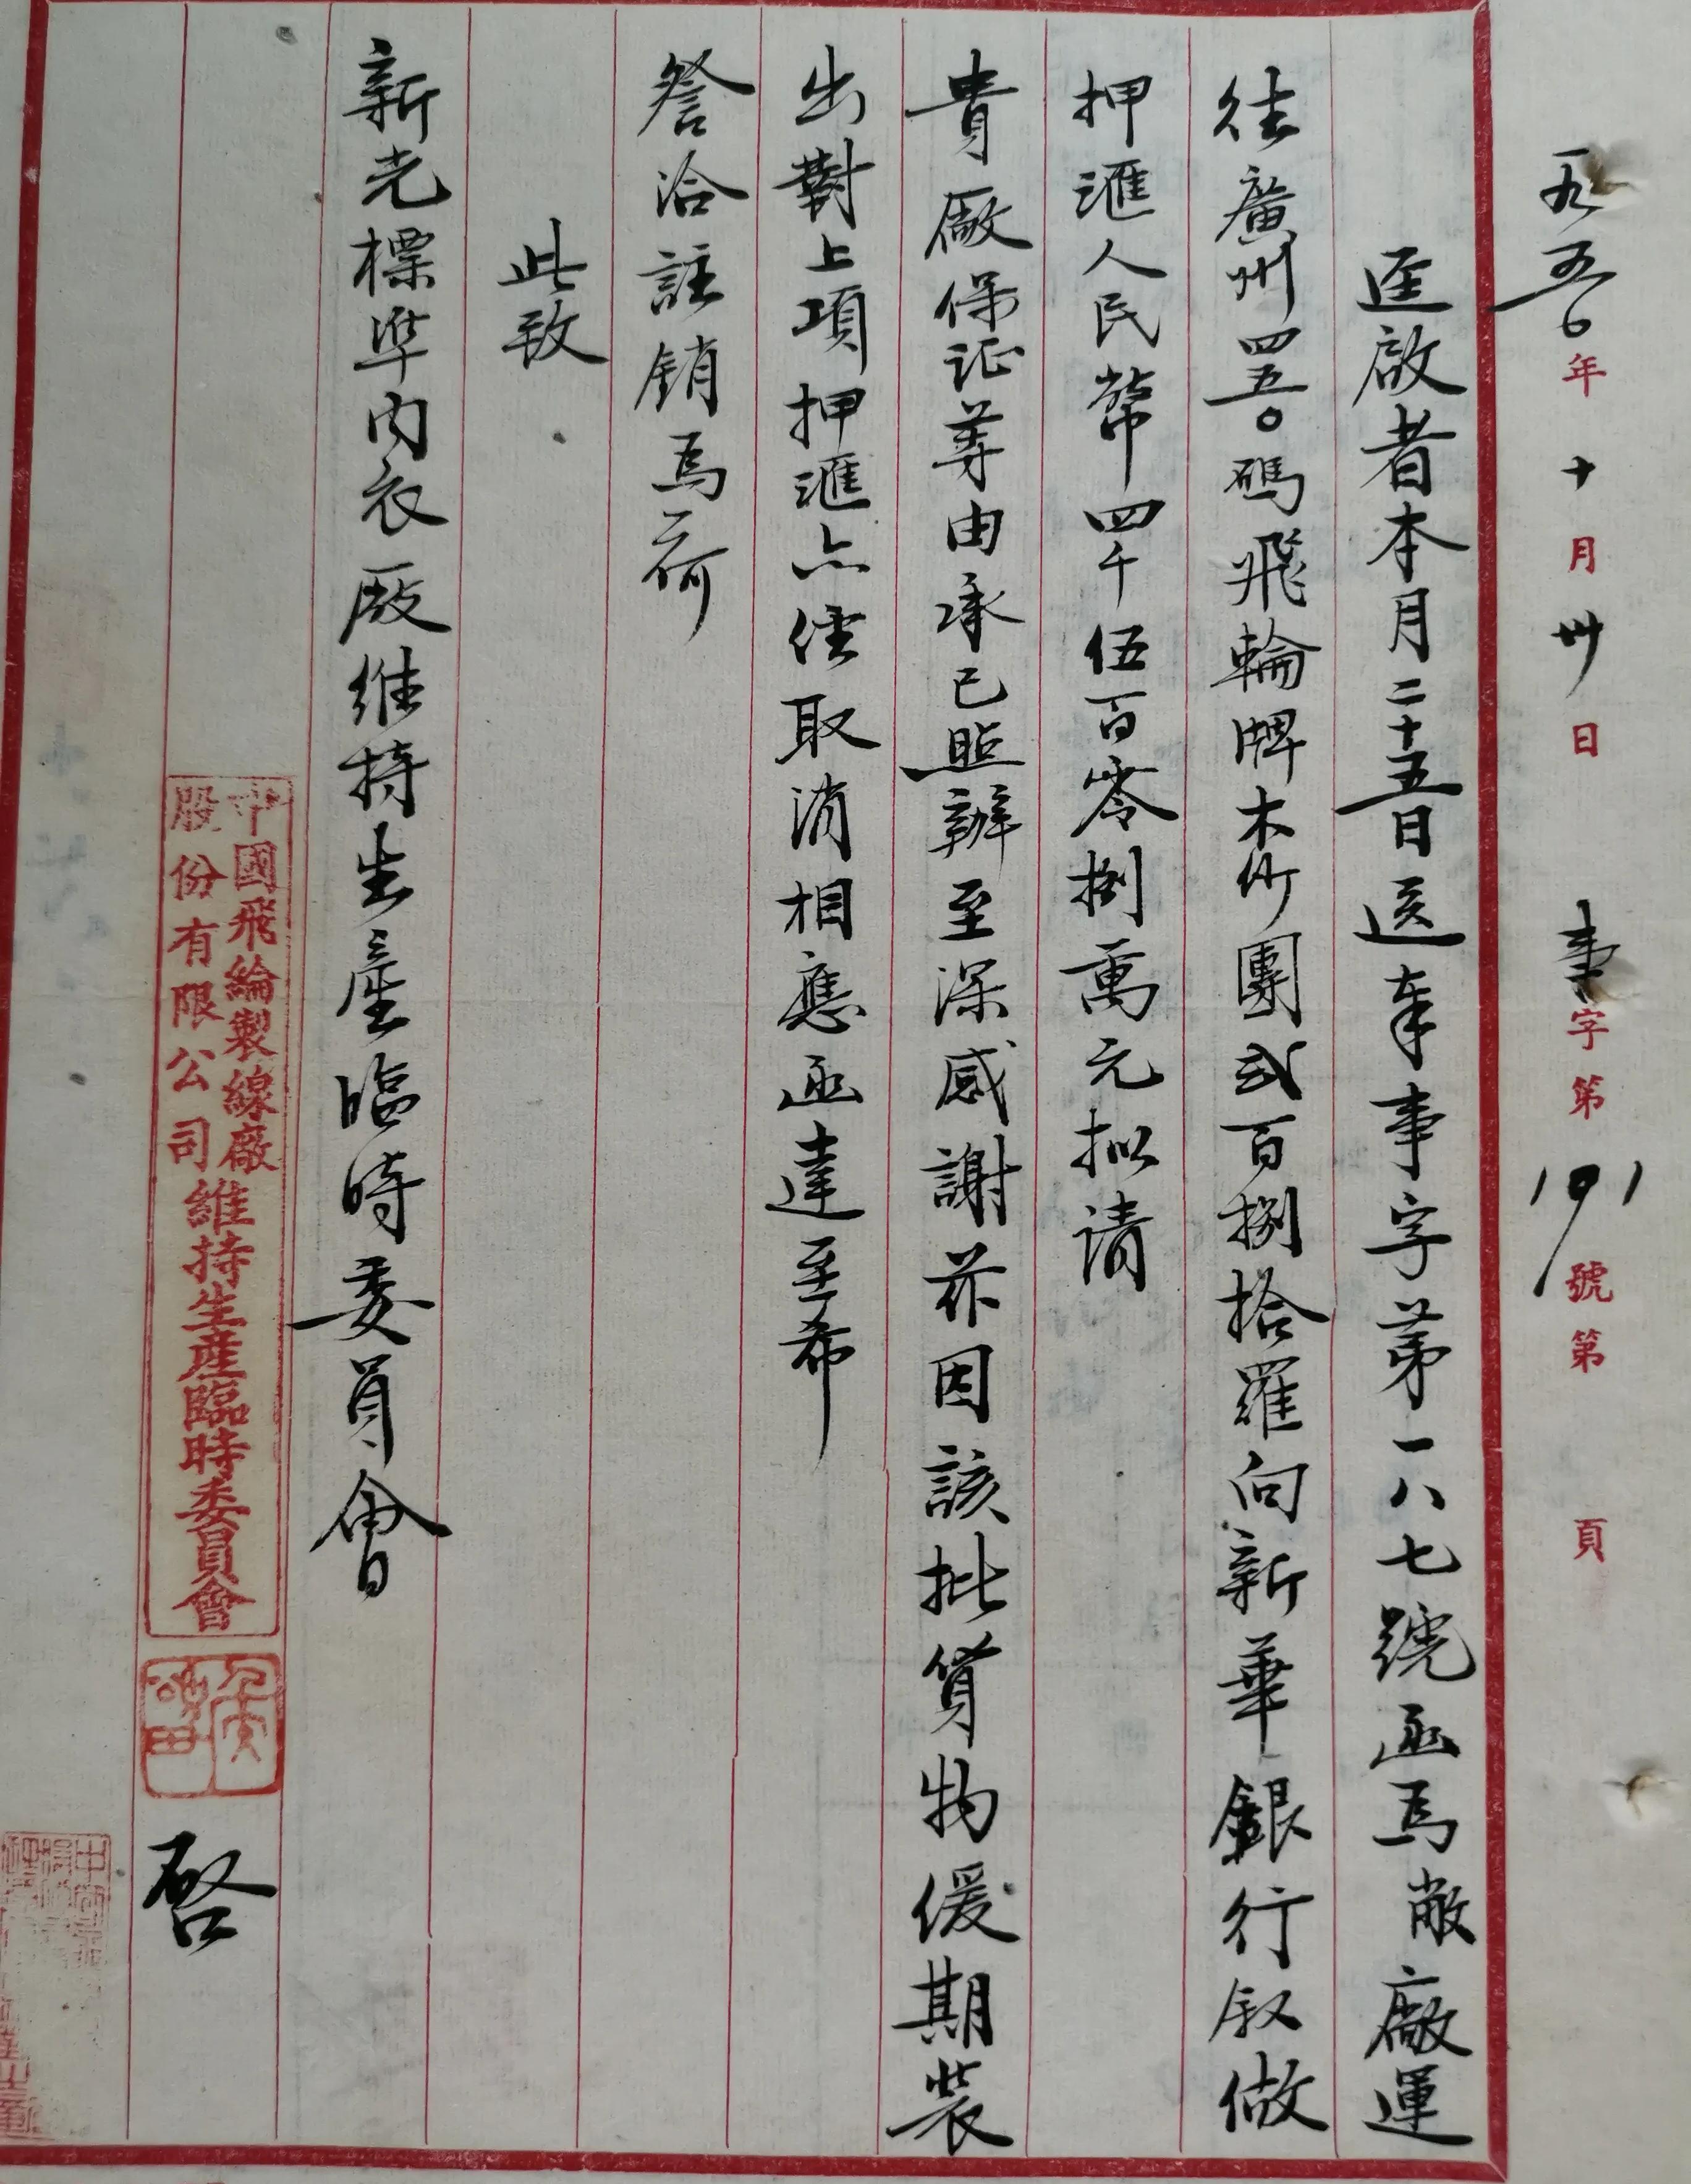 一九五〇年十月卅日 事字第191號第 頁
逕啟者本月二十五日送奉事字第一八七號函爲敝廠運
往廣州四五〇碼飛輪牌木紗團弍百捌拾羅向新華銀行叙做
押滙人民幣四千伍百零捌萬元拟请
貴廠保证等由承已照辦至深感謝茲因該批貨物緩期裝
出對上項押滙亦經取消相應函達至希
詧洽註銷爲荷
此致
新光標準内衣廠維持生產臨時委員會
中國飛綸製線廠
股份有限公司
維持生產臨時委員會
啓